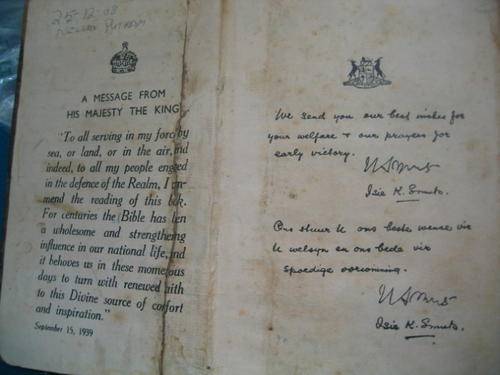 25-12-08
A MESSAGE FROM
HIS MAJESTY THE KING
"To all serving in my forc by
sea, or land, or in the air, and
indeed, to all my people engged
in the defence of the Realm, I om-
mend the reading of this bok.
For centuries the Bible has ben
a wholesome and strengthing
influence in our national life, and
it behoves us in these momeous
days to turn with renewed aith
to this Divine source of cofort
and inspiration."
September 15, 1939
We send you our best wishes for
your welfare + our prayers for
early victory.
Isie K. Smuts.
Ons stuur U ons beste wense vir
U welsyn en ons bede vir
spoedige oorwinning.
Isie K. Smuts.